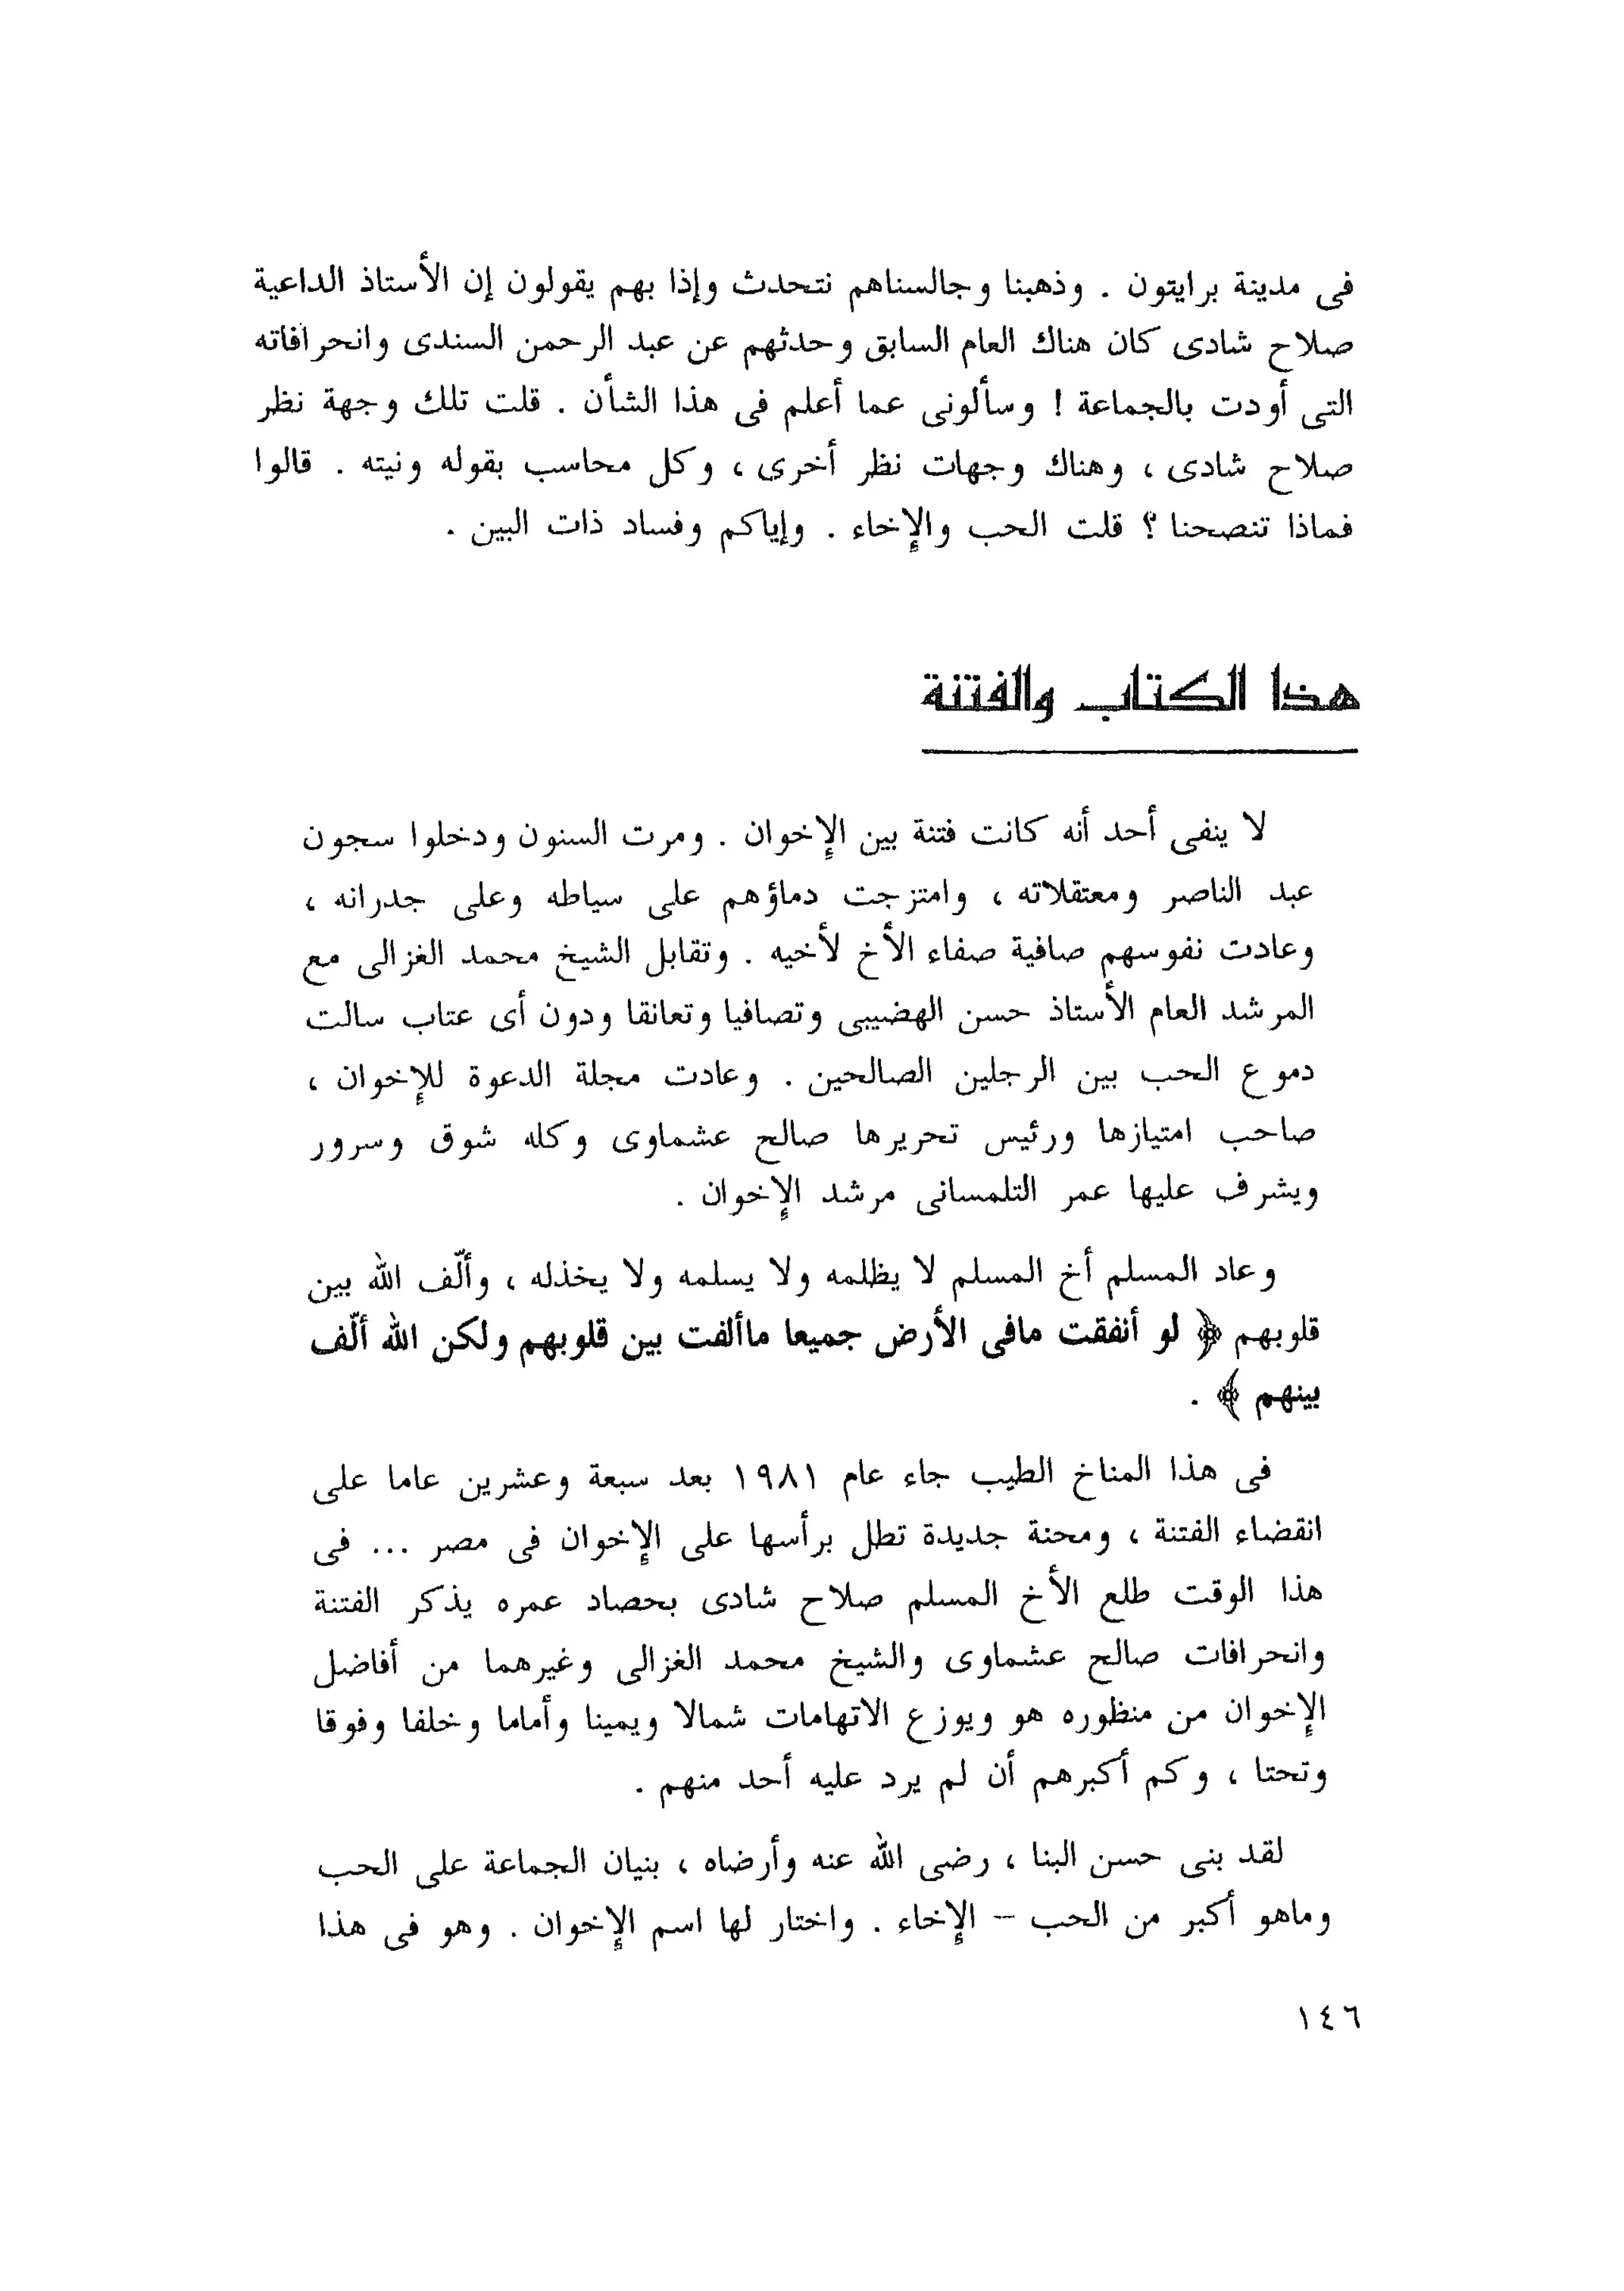 فى مدينة برايتون . وذهبنا وجالسناهم نتحدث وإذا بهم يقولون إن الأستاذ الداعية
صلاح شادى كان هناك العام السابق وحدثهم عن عبد الرحمن السندى وانحرافاته
التى أودت بالجماعة ! وسألونى عما أعلم فى هذا الشأن . قلت تلك وجهة نظر
صلاح شادى ، وهناك وجهات نظر أخرى ، وكل محاسب بقوله ونيته . قالوا
فماذا تنصحنا ؟ قلت الحب والإخاء . وإياكم وفساد ذات البين .
هذا الكتاب والفتنة
لا ينفى أحد أنه كانت فتنة بين الإخوان . ومرت السنون ودخلوا سجون
عبد الناصر ومعتقلاته ، وامتزجت دماؤهم على سياطه وعلى جدرانه ،
وعادت نفوسهم صافية صفاء الأخ لأخيه . وتقابل الشيخ محمد الغزالى مع
المرشد العام الأستاذ حسن الهضيبى وتصافيا وتعانقا ودون أى عتاب سالت
دموع الحب بين الرجلين الصالحين . وعادت مجلة الدعوة للإخوان ،
صاحب امتيازها ورئيس تحريرها صالح عشماوى وكله شوق وسرور
ويشرف عليها عمر التلمسانى مرشد الإخوان .
وعاد المسلم أخ المسلم لا يظلمه ولا يسلمه ولا يخذله ، وألّف الله بين
قلوبهم ﴿ لو أنفقت مافى الأرض جميعا ماألفت بين قلوبهم ولكن الله ألّف
بينهم ﴾ .
فى هذا المناخ الطيب جاء عام ١٩٨١ بعد سبعة وعشرين عاما على
انقضاء الفتنة ، ومحنة جديدة تطل برأسها على الإخوان فى مصر ... فى
هذا الوقت طلع الأخ المسلم صلاح شادى بحصاد عمره يذكر الفتنة
وانحرافات صالح عشماوى والشيخ محمد الغزالى وغيرهما من أفاضل
الإخوان من منظوره هو ويوزع الاتهامات شمالا ويمينا وأماما وخلفا وفوقا
وتحتا ، وكم أكبرهم أن لم يرد عليه أحد منهم .
لقد بنى حسن البنا ، رضى الله عنه وأرضاه ، بنيان الجماعة على الحب
وماهو أكبر من الحب – الإخاء . واختار لها اسم الإخوان . وهو فى هذا
١٤٦